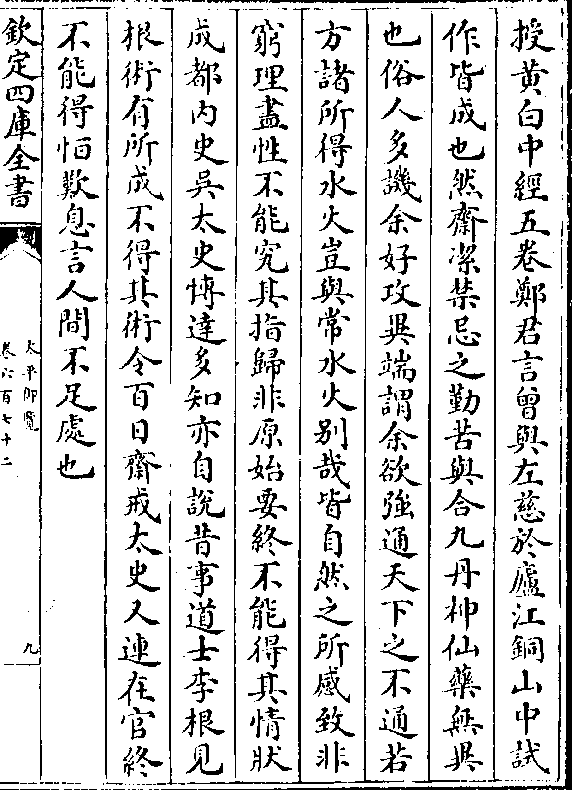 授黄白中經五卷鄭君言曾與左慈於廬江銅山中試
作皆成也然齋潔禁忌之勤苦與合九丹神仙藥無異
也俗人多譏余好攻異端謂余欲強通天下之不通若
方諸所得水火豈與常水火别哉皆自然之所感致非
窮理盡性不能究其指歸非原始要終不能得其情狀
成都内史吳太史博達多知亦自說昔事道士李根見
根術有所成不得其術令百日齋戒太史又連在官終
不能得恒歎息言人間不足處也
欽定四庫全書
太平御覽
卷六百七十二
九